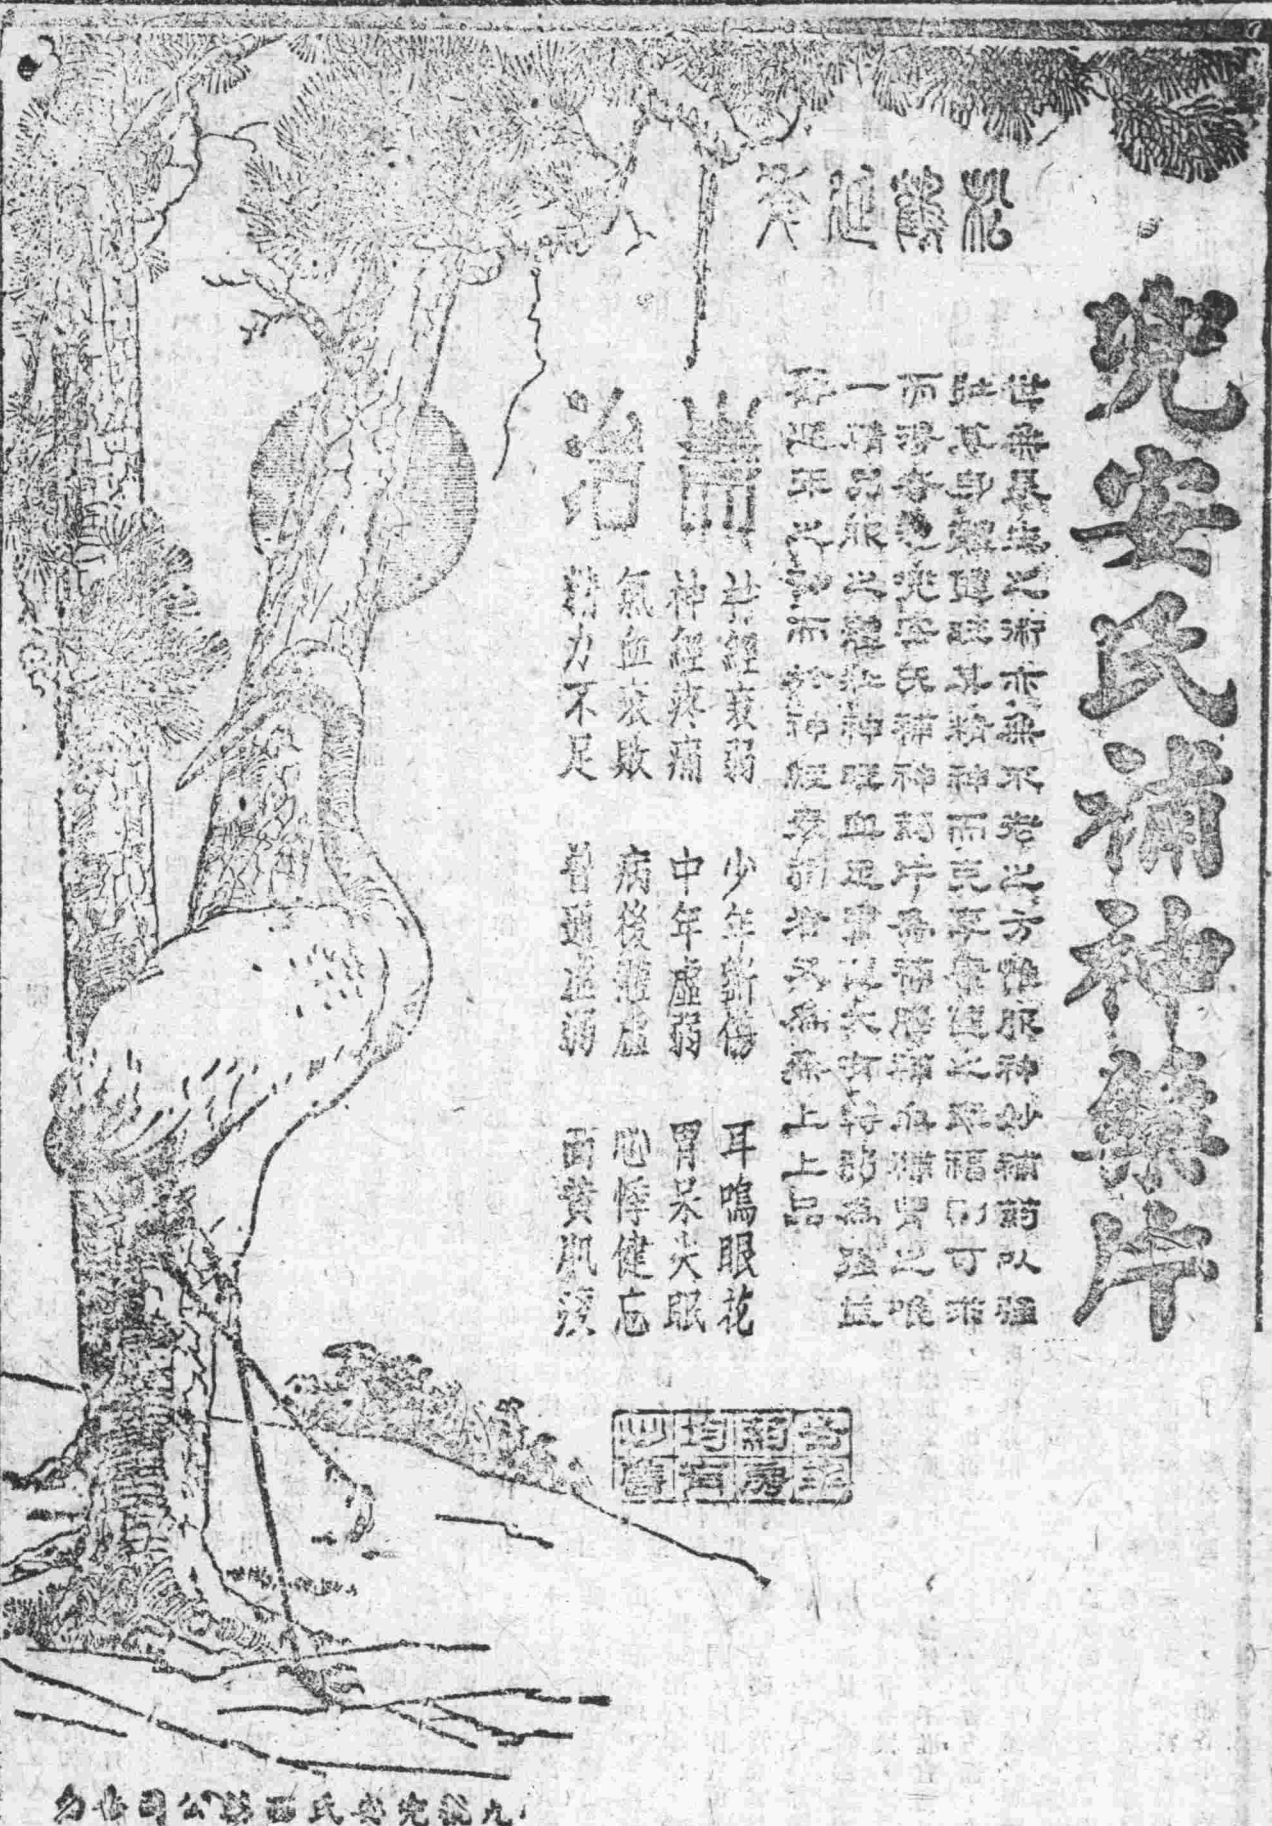 兜安氏補神藥片
松鶴延年
世無長生之術亦無不老之方惟服神妙補藥以強
壯其身軀健旺其精神而克享康健之幸福則可求
而得者也兜安氏補神藥片為補腦補血補胃之唯
一精品服之體壯神旺血足胃大有特為強
延年之而於神經衰弱者尤為無上上品
專治
神經衰弱 少年斲傷 耳鳴眼花
神經疼痛 中年虛弱 胃呆失眠
氣血衰敗 病後體虛 心悸健忘
精力不足 普通虛弱 面黃肌瘦
各埠藥房均有出售
兜安氏西藥公司